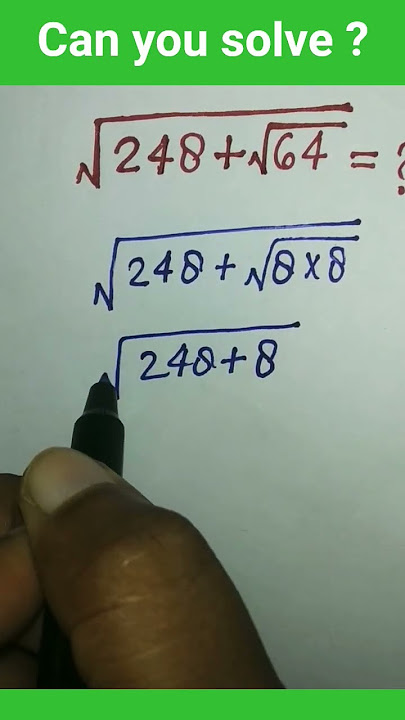 Can you solve ?
√248+√64 = ?
√248+√8×8
√248+8